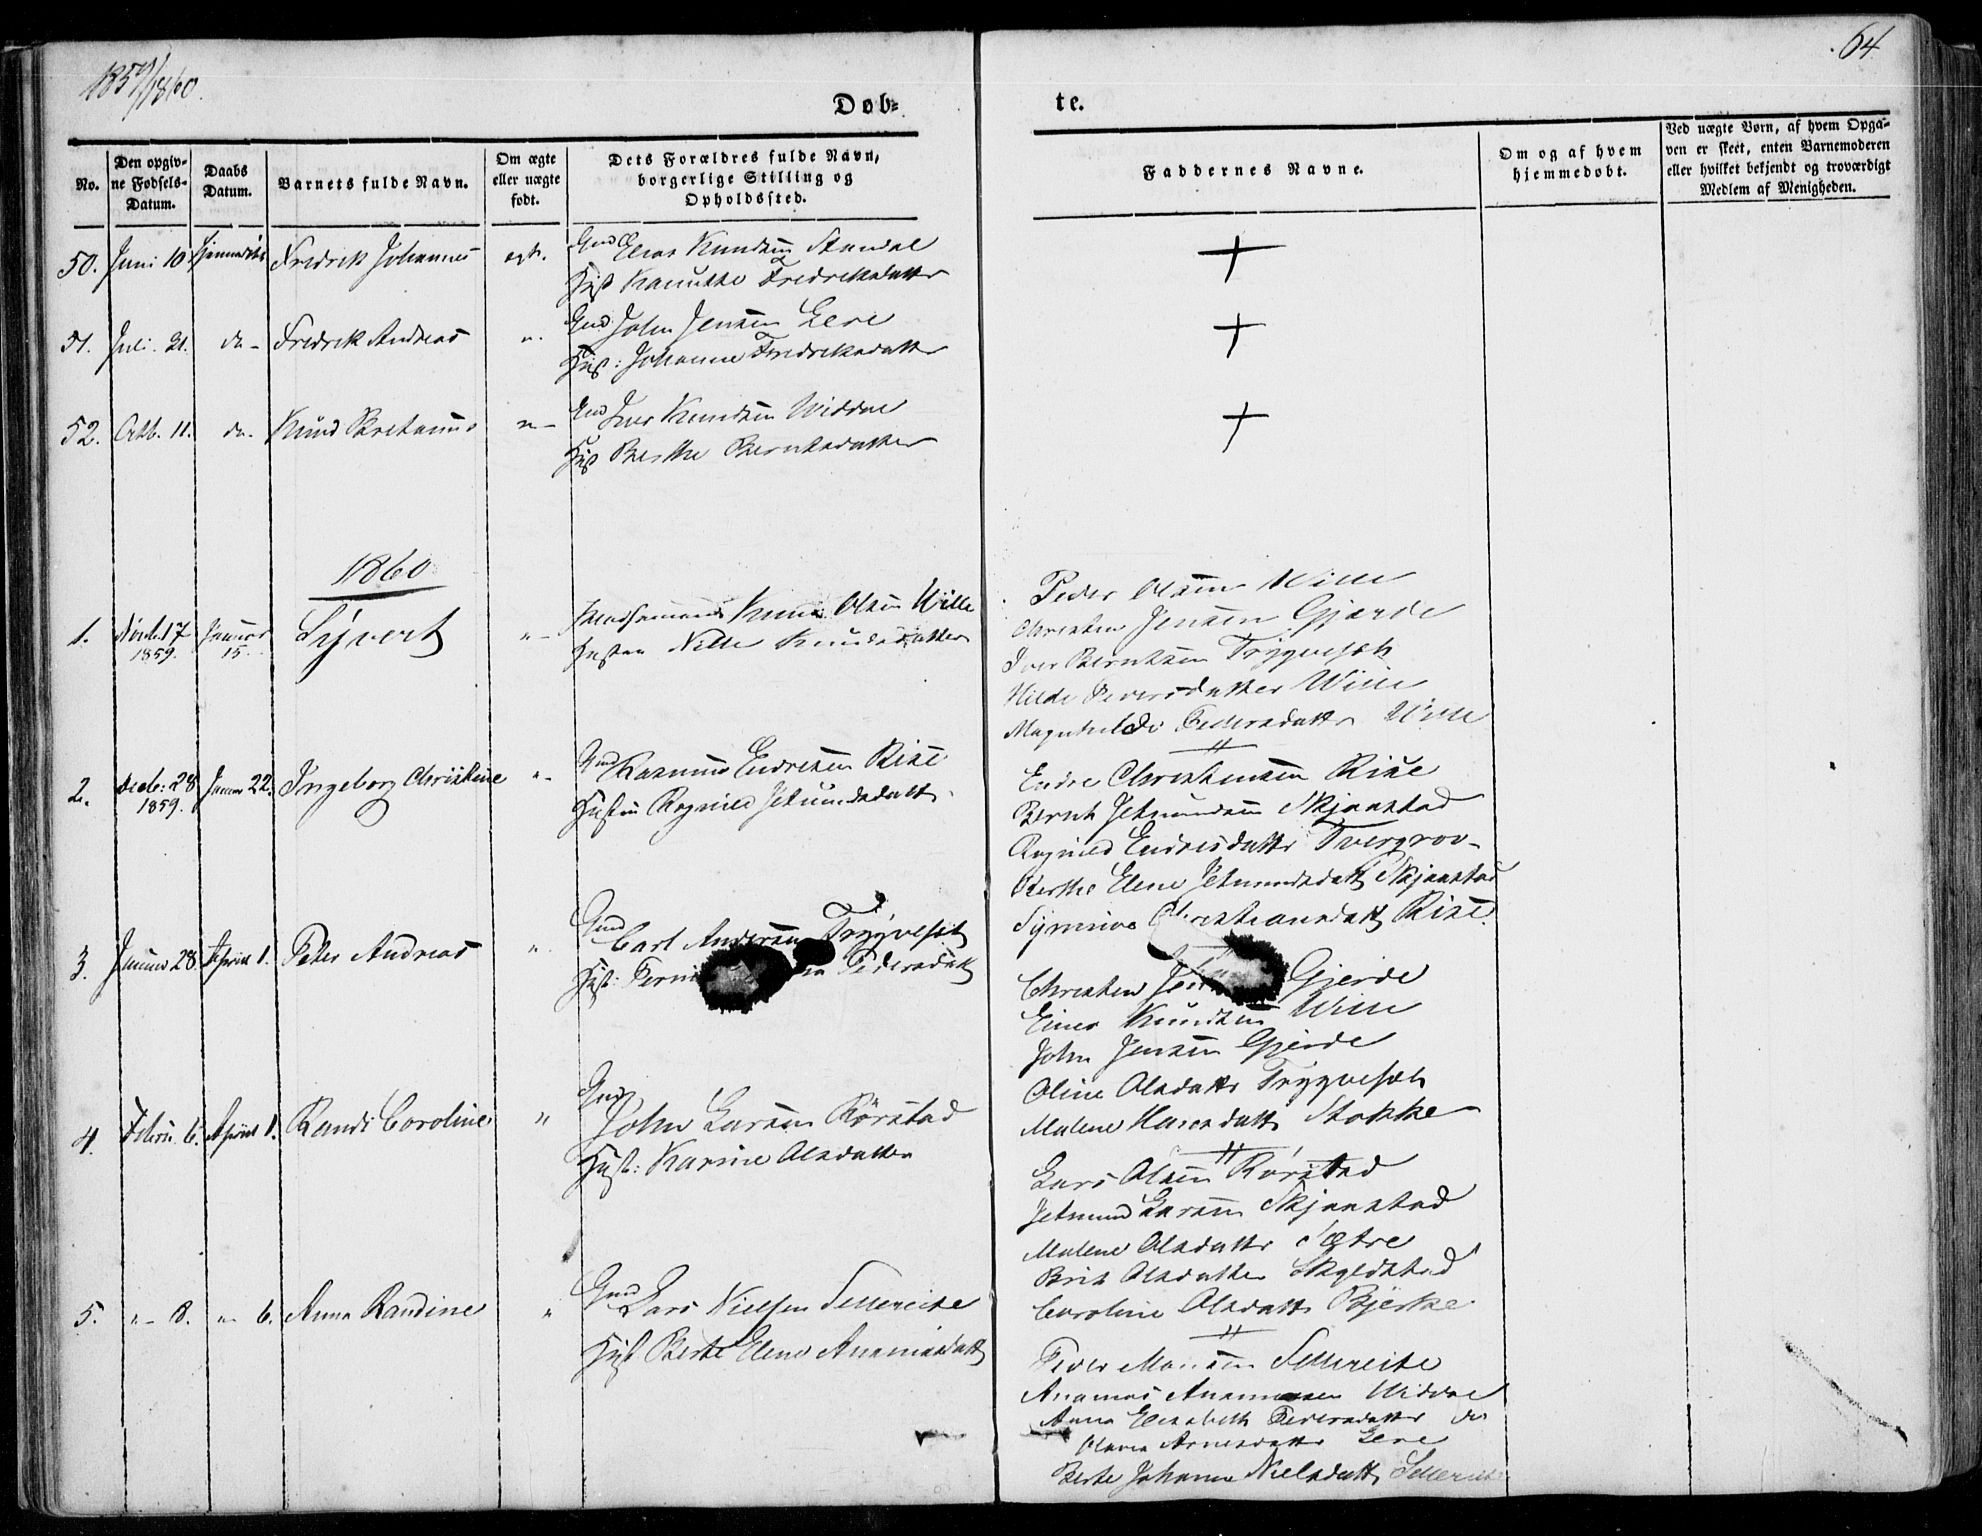 1859/1860.
64
Døb=
te.
No.
Den opgiv-
ne Fødsels-
Datum.
Daabs
Datum.
Barnets fulde Navn.
Om ægte
eller uægte
født.
Dets Forældres fulde Navn,
borgerlige Stilling og
Opholdssted.
Faddernes Navne.
Om og af hvem
hjemmedøbt.
Ved uægte Børn, af hvem Opga-
ven er skeet, enten Barnemoderen
eller hvilket bekjendt og troværdigt
Medlem af Menigheden.
50. Juni 10 Hjemmedøbt Fredrik Johannes ægt. Gmd Elias Knudsen Standal
Hust Kanutte Fredriksdatter
51. Juli 21. do- Fredrik Andreas Gmd John Jensen Leve
Hust: Johanne Fredriksdatter
52. Octb. 11. do- Knud Gmd Iver Knudsen Widdal
Hust Berthe Berntsdatter
1860
1. Novb. 17 1859. Januar 15. Sijvert Knud Olsen Wille
Hustru Nille Knudsdatter
Peder Olsen Wille
Christen Jensen Gjerde
Iver Berntsen Trygvesæt
Hilde Peders datter Wille
Magnhilde Pedersdatter Wille
2. Decb: 28 1859. Januar 22. Ingeborg Christine Gmd Rasmus Endresen Rise
Hustru Ragnild Jetmundsdatt.
Endre Christensen Rise
Bernt Jetmundsen Skjaastad
Ragnild Endresdatter Tvergrov-
Berthe Elene Jetmundsdatt Skjaastad
Synnive Christiansdatt Rise.
3. Januar 28. April 1. Peter Andreas Gmd Carl Andersen Trygvesæt
Hust: Pedersdatt
Christen Gjerde
Einar Knudsen Wille
John Jensen Gjerde
Oline Olsdatter Trygvesæt
Malene Hansdatt Stokke
4. Febru. 6. April 1. Randi Caroline Gmd John Larsen Rörstad
Hust: Karine Olsdatter
Lars Olsen Rörstad
Jetmund Larsen Skjaastad
Malene Olsdatter Sætre
Brit Olsdatter Skyldstad
Caroline Olsdatt Bjerke
5. "- 8. "- 6. Anna Randine Gmd Lars Nielsen Sellereite
Hust Berte Elene Ananiasdatt
Peder Sellereite
Ananias Ananiassen Widdal
Anna Elisabeth Pedersdatter do
Olava Arnesdatter Leve
Berte Johanne Nielsdatt Sellereite